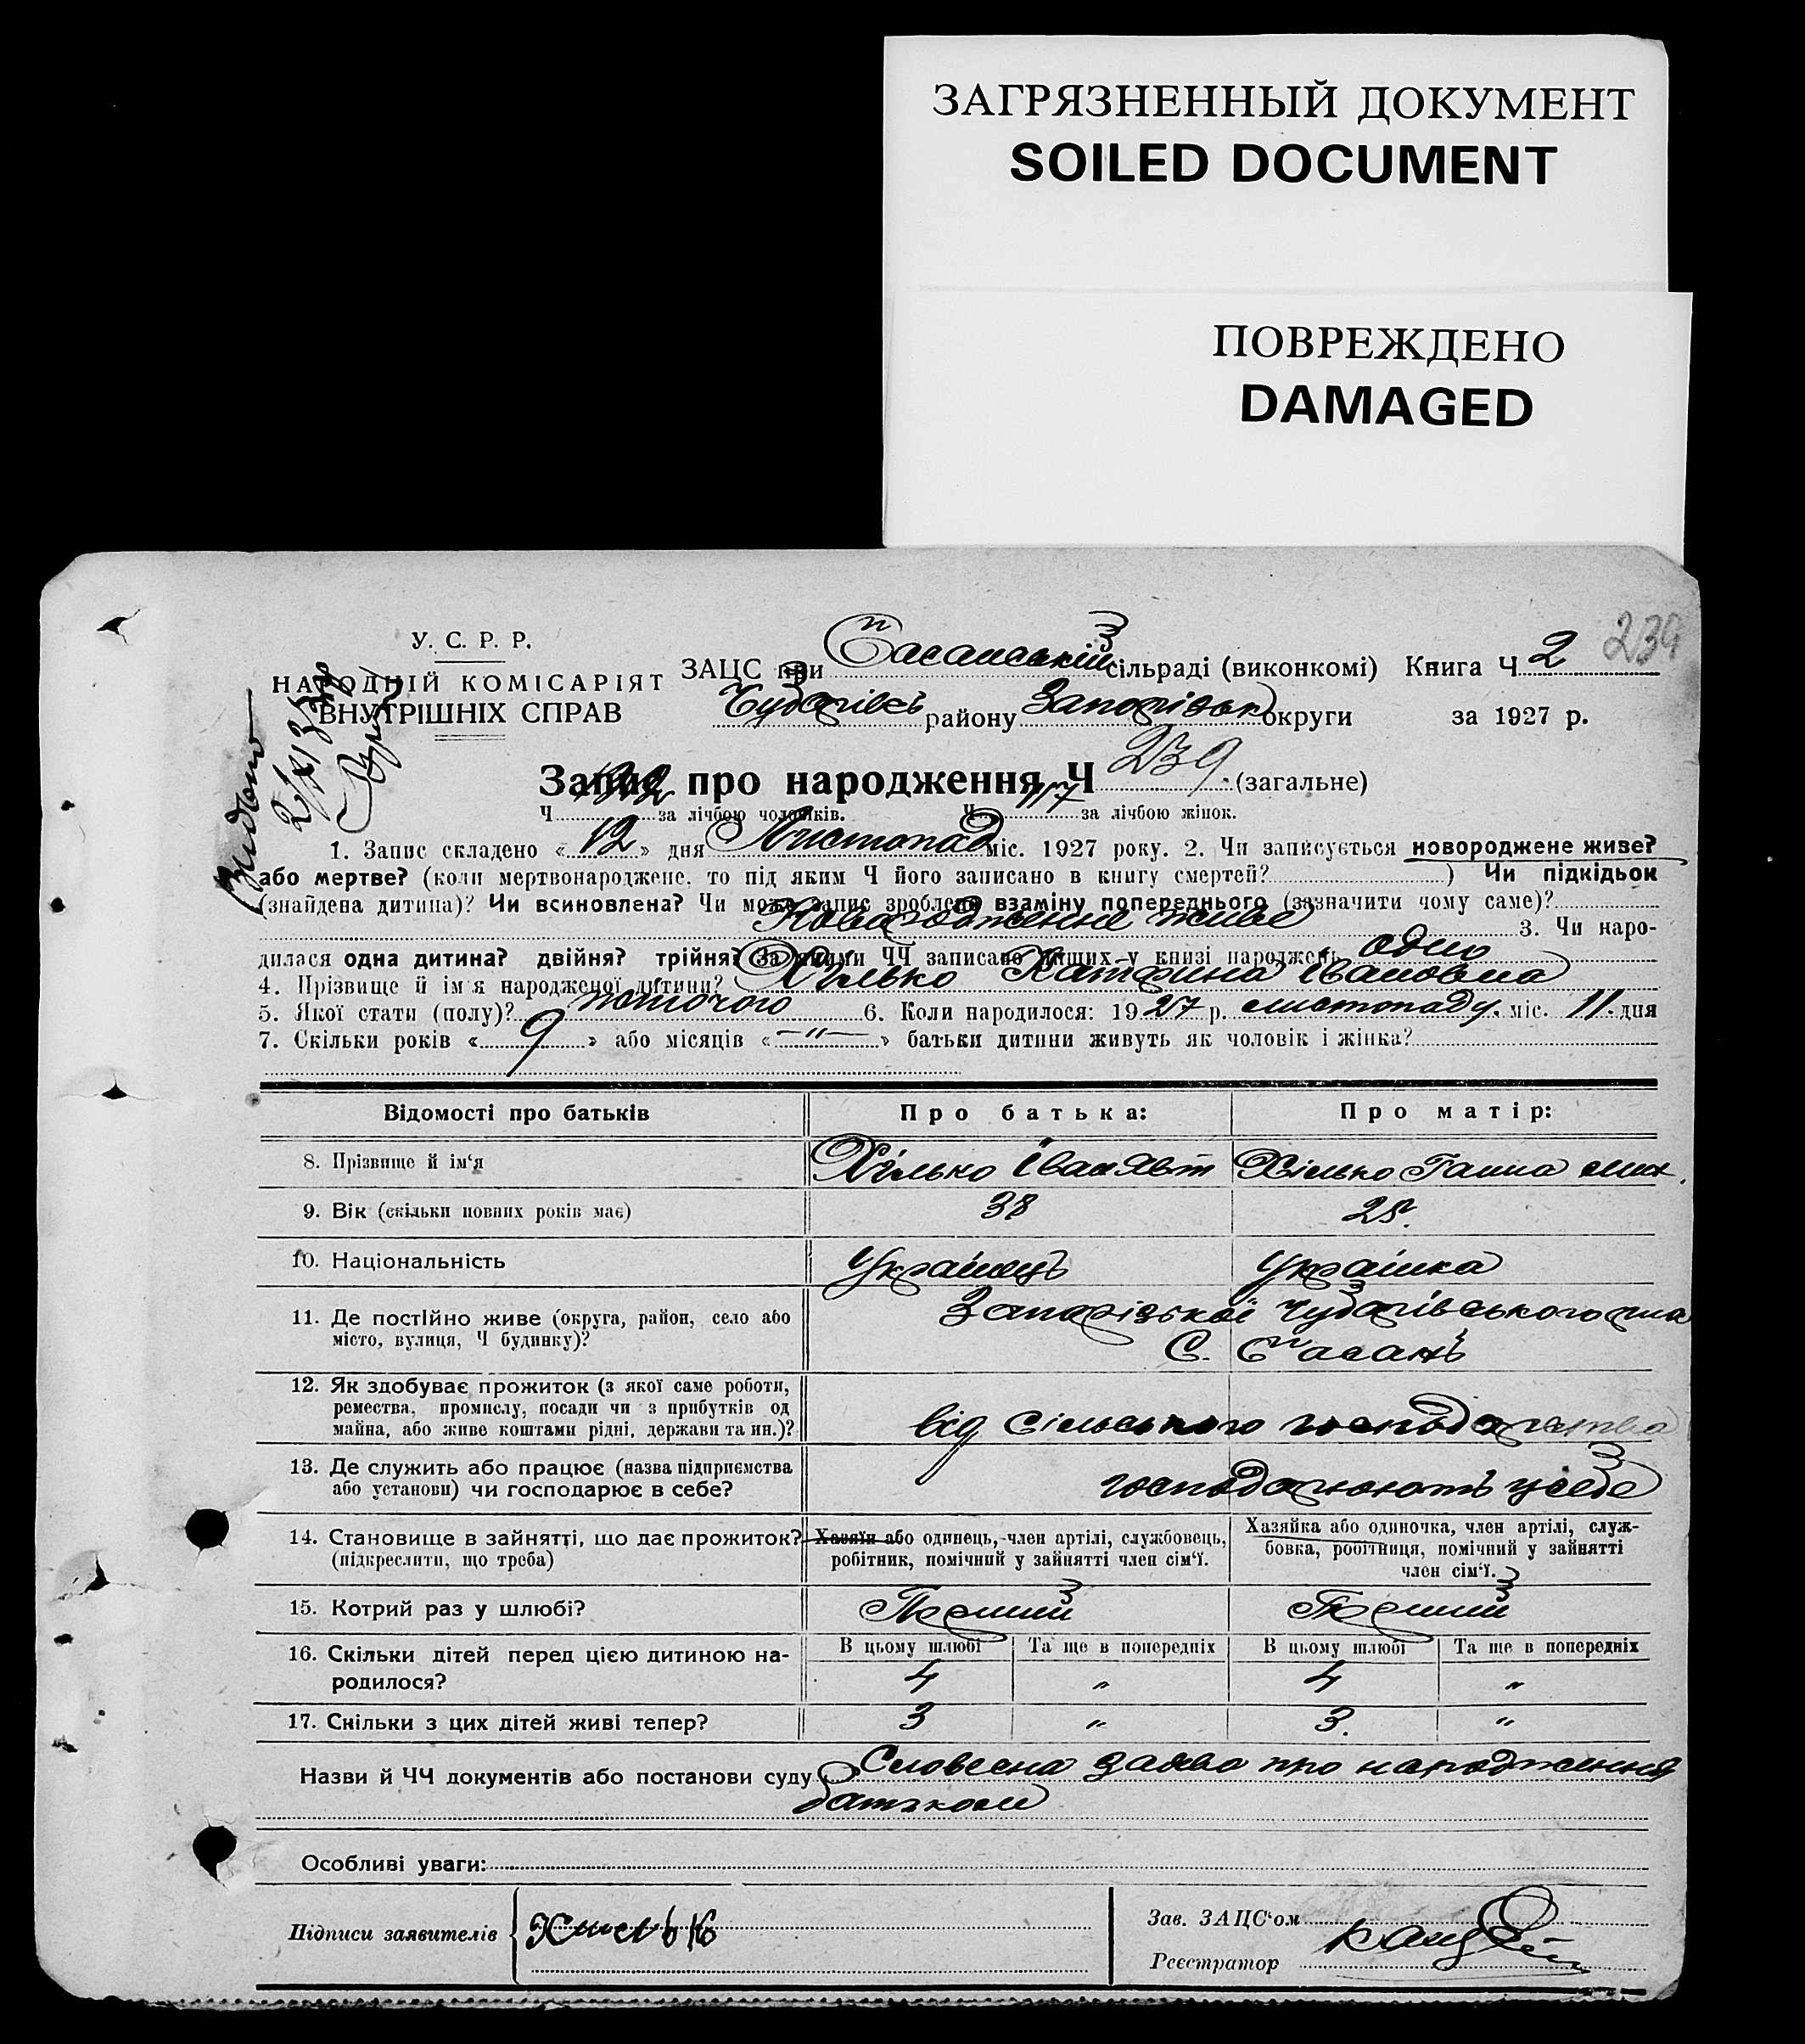 ЗАГРЯЗНЕННЫЙ ДОКУМЕНТ
SOILED DOCUMENT
ПОВРЕЖДЕНО
DAMAGED
239
У. С. Р. Р.
НАРОДНІЙ КОМІСАРІЯТ
ВНУТРІШНІХ СПРАВ
ЗАЦС при сільраді (виконкомі) Книга Ч. 2
району Запоріськ округи за 1927 р.
Запис про народження Ч 239 (загальне)
Ч за лічбою чоловіків. Ч 117 за лічбою жінок.
1. Запис складено « 12 » дня Листопад міс. 1927 року. 2. Чи записується новороджене живе?
або мертве? (коли мертвонароджене, то під яким Ч його записано в книгу смертей? ) Чи підкідьок
(знайдена дитина)? Чи всиновлена? Чи може запис зроблено взаміну попереднього (зазначити чому саме)?
Новародженне живе 3. Чи наро-
дилася одна дитина? двійня? трійня? За якими ЧЧ записано інших у книзі народжень одно
4. Прізвище й ім'я народженої дитини? Хілько Катерина Івановна
5. Якої стати (полу)? жіночого 6. Коли народилося: 1927 р. листопаду. міс. 11. дня
7. Скільки років « 9 » або місяців « —"— » батьки дитини живуть як чоловік і жінка?
Відомості про батьків Про батька: Про матір:
8. Прізвище й ім'я Хілько Іван Явт Хілько Ганна Мих.
9. Вік (скільки повних років має) 38 25.
10. Національність Українець Українка
11. Де постійно живе (округа, район, село або Запорізької
місто, вулиця, Ч будинку)? С.
12. Як здобуває прожиток (з якої саме роботи,
ремества, промислу, посади чи з прибутків од
майна, або живе коштами рідні, держави та ин.)? від сільського господарства
13. Де служить або працює (назва підприємства
або установи) чи господарює в себе? господарюють у себе
14. Становище в зайнятті, що дає прожиток? Хазяїн або одинець, член артілі, службовець, Хазяйка або одиночка, член артілі, служ-
(підкреслити, що треба) робітник, помічний у зайнятті член сім'ї. бовка, робітниця, помічний у зайнятті
член сім'ї.
15. Котрий раз у шлюбі? Перший Перший
16. Скільки дітей перед цією дитиною на- В цьому шлюбі Та ще в попередніх В цьому шлюбі Та ще в попередніх
родилося? 4 " 4 "
17. Скільки з цих дітей живі тепер? 3 " 3. "
Назви й ЧЧ документів або постанови суду Словесна заява про народження
батьком
Особливі уваги:
Підписи заявителів
Зав. ЗАЦС'ом
Реєстратор